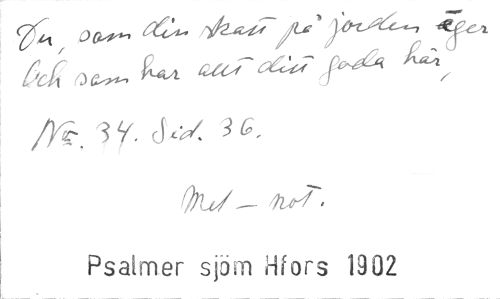 Du, som din skatt på jorden äger
Och som har allt ditt goda här,
No. 34. Sid. 36.
Mel – not.
Psalmer sjöm Hfors 1902